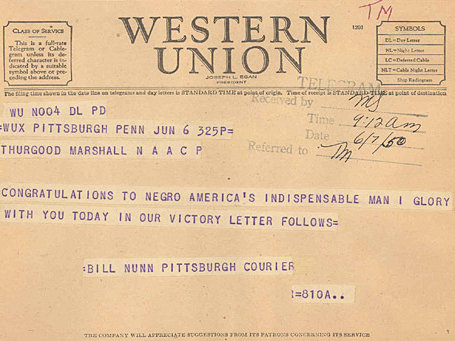 TM
CLASS OF SERVICE
This is a full-rate Telegram or Cablegram unless its deferred character is indicated by a suitable symbol above or preceding the address.
WESTERN
UNION
JOSEPH L. EGAN
PRESIDENT
SYMBOLS
DL=Day Letter
NL=Night Letter
LC=Deferred Cable
NLT=Cable Night Letter
Ship Radiogram
The filing time shown in the date line on telegrams and day letters is STANDARD TIME at point of origin. Time of receipt is STANDARD TIME at point of destination
TELEGRAM
Received by MS
Time 9:12am
Date 6/7/50
Referred to TM
WU N004 DL PD
=WUX PITTSBURGH PENN JUN 6 325P=
THURGOOD MARSHALL N A A C P
CONGRATULATIONS TO NEGRO AMERICA'S INDISPENSABLE MAN I GLORY
WITH YOU TODAY IN OUR VICTORY LETTER FOLLOWS=
=BILL NUNN PITTSBURGH COURIER
1=810A..
THE COMPANY WILL APPRECIATE SUGGESTIONS FROM ITS PATRONS CONCERNING ITS SERVICE